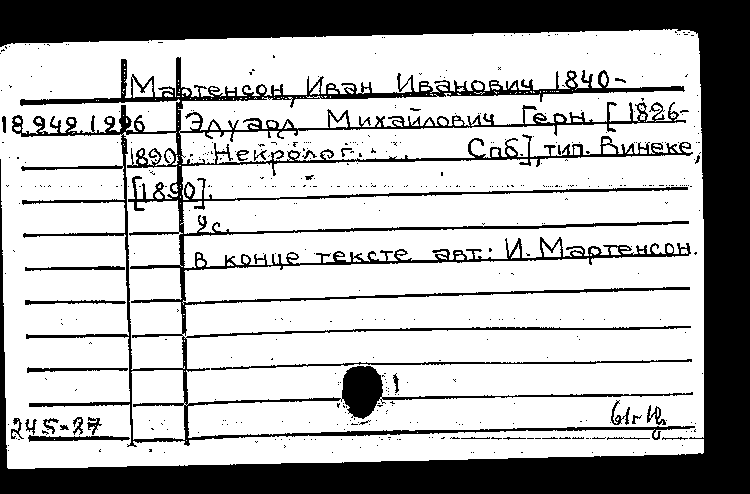 Мартенсон, Иван Иванович, 1840-
18.242.1.226 Эдуард Михайлович Герн. [1826-
1890]. Некролог. Спб], тип. Винеке,
[1890].
9с.
В конце тексте авт.: И. Мартенсон.
1
245-27